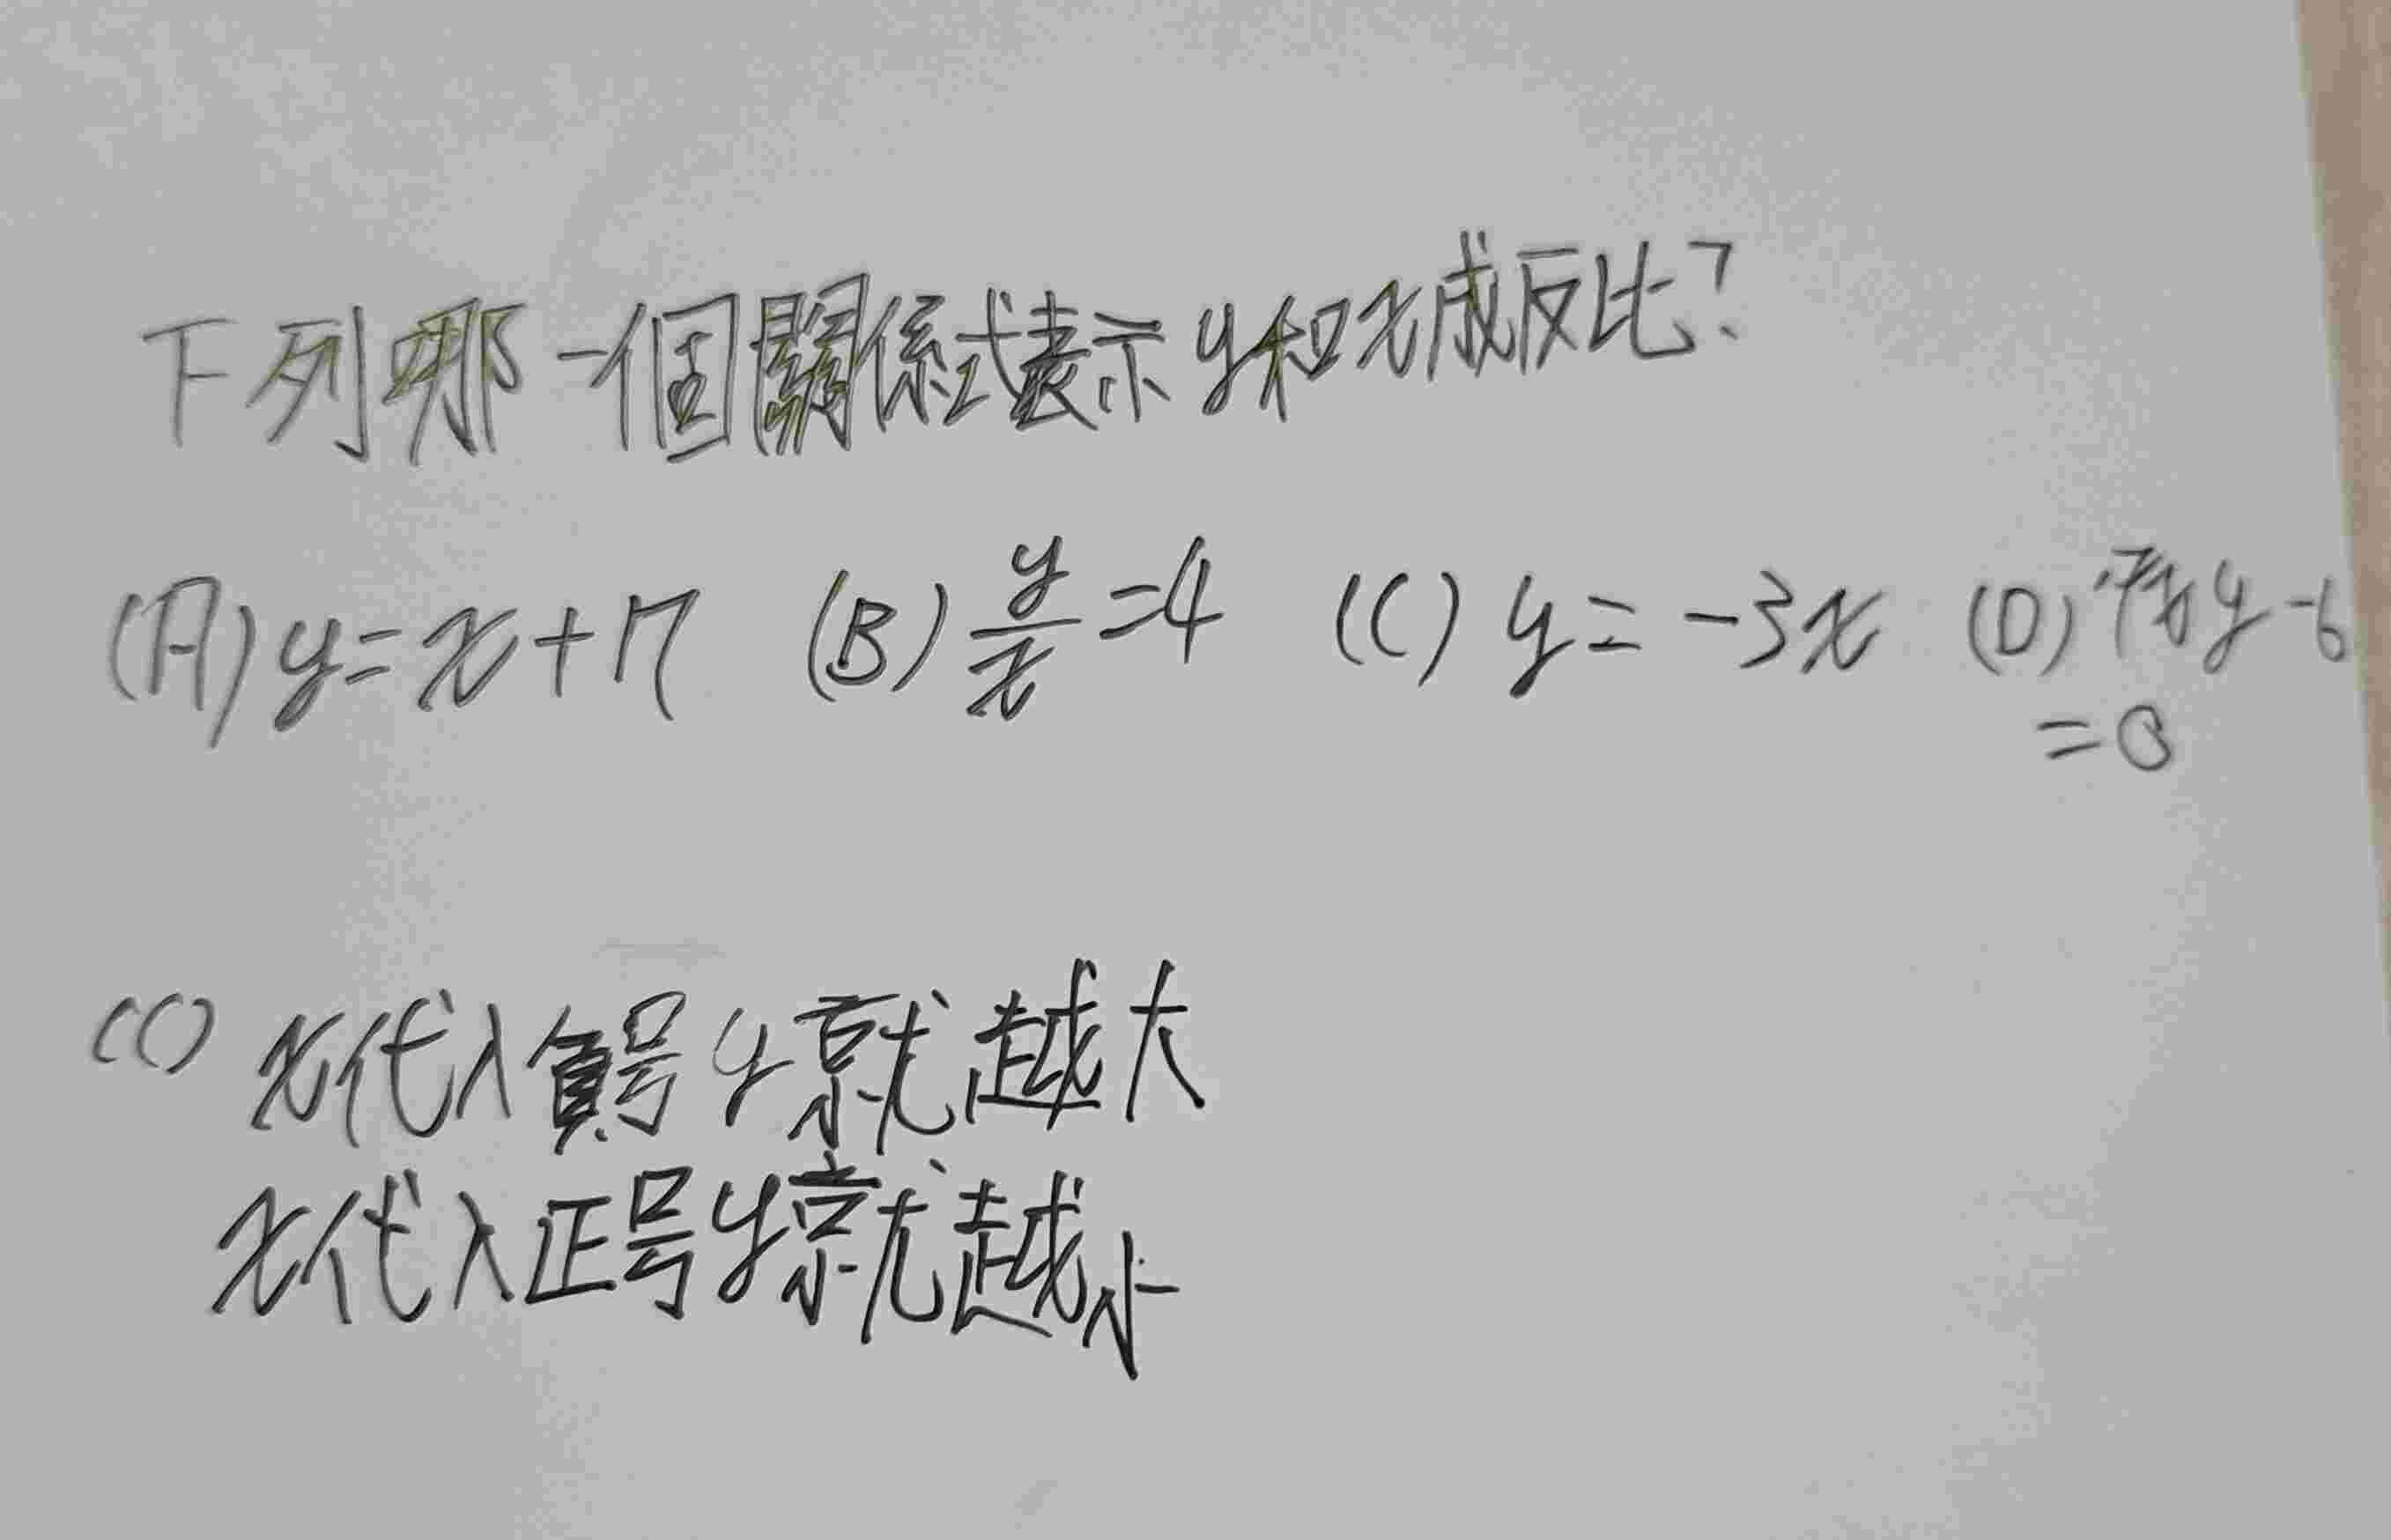 下列哪一個關係式表示y和x成反比?
(A) y=x+7 (B) y/x=4 (C) y=-3x (D) xy-6
=0
(C) x代入負号y就越大
x代入正号y就越小